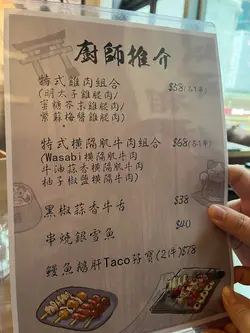 廚師推介
特式雞肉組合 $58(各1串)
(明太子雞腿肉/
蜜糖芥末雞腿肉/
紫蘇梅醬雞腿肉)
特式橫隔肌牛肉組合 $68(各1串)
(Wasabi橫隔肌牛肉
牛油蒜香橫隔肌牛肉
柚子椒鹽橫隔肌牛肉)
黑椒蒜香牛舌 $38
串燒銀雪魚 $40
鰻魚鵝肝Taco筒寶(2件)$78